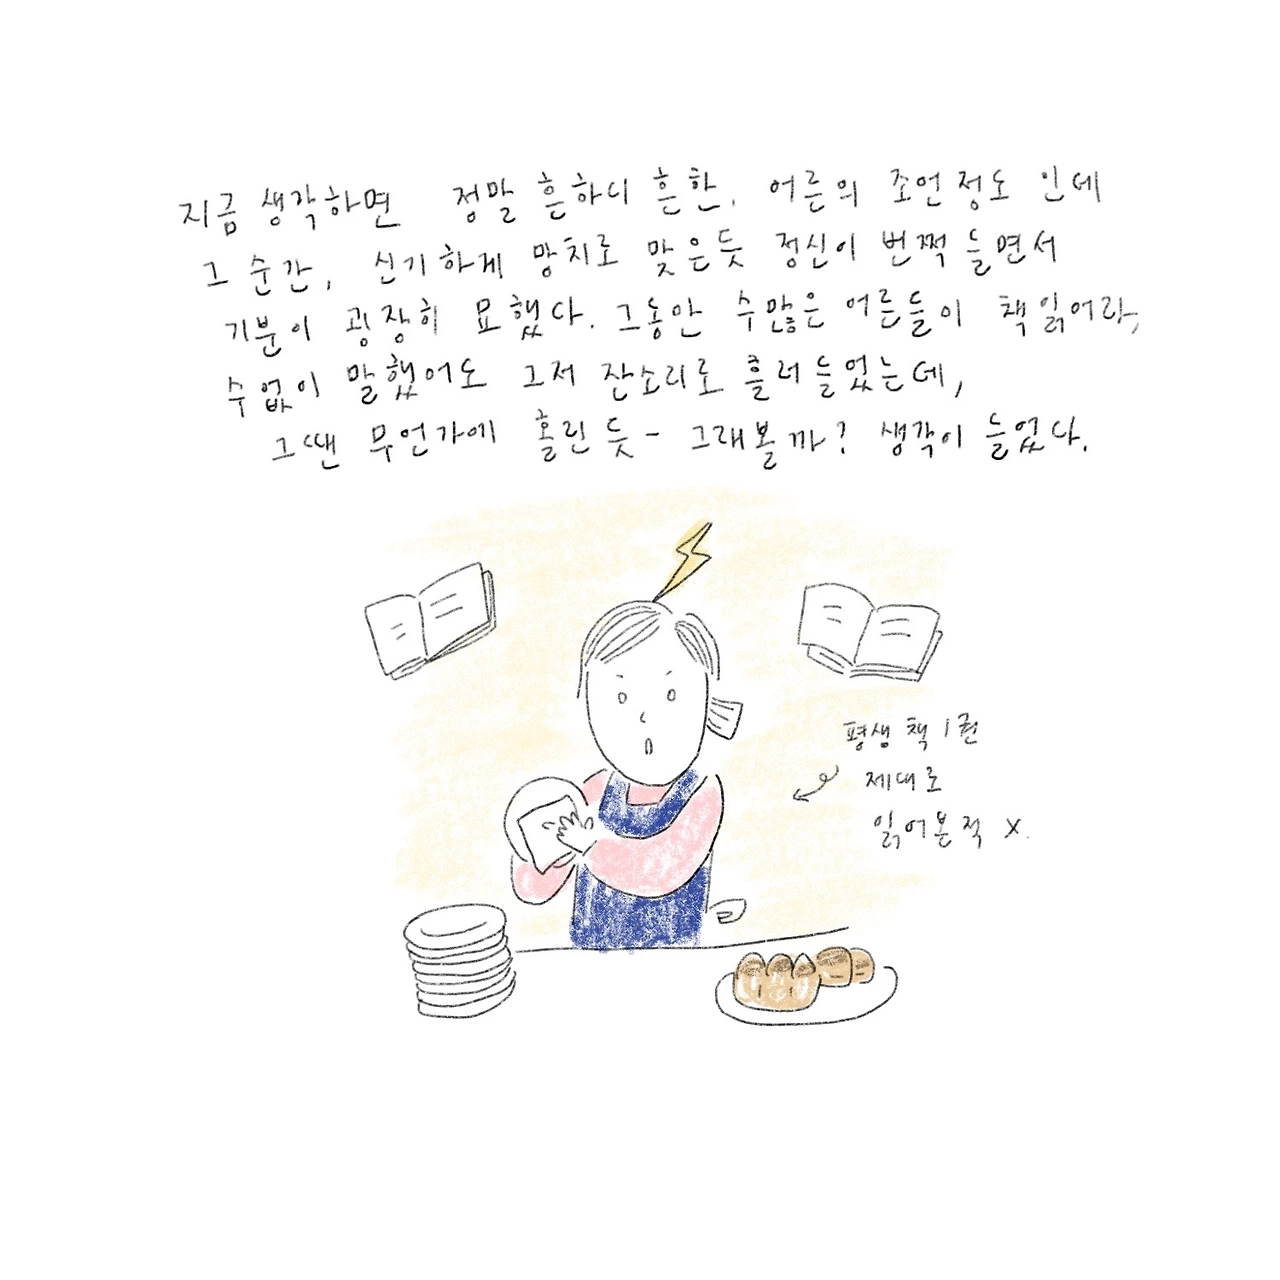 지금 생각하면 정말 흔하디 흔한, 어른의 조언정도 인데
그 순간, 신기하게 망치로 맞은듯 정신이 번쩍 들면서
기분이 굉장히 묘했다. 그동안 수많은 어른들이 책읽어라,
수없이 말했어도 그저 잔소리로 흘려들었는데,
그땐 무언가에 홀린듯- 그래볼까? 생각이 들었다.
평생 책 1권
제대로
읽어본적 X.